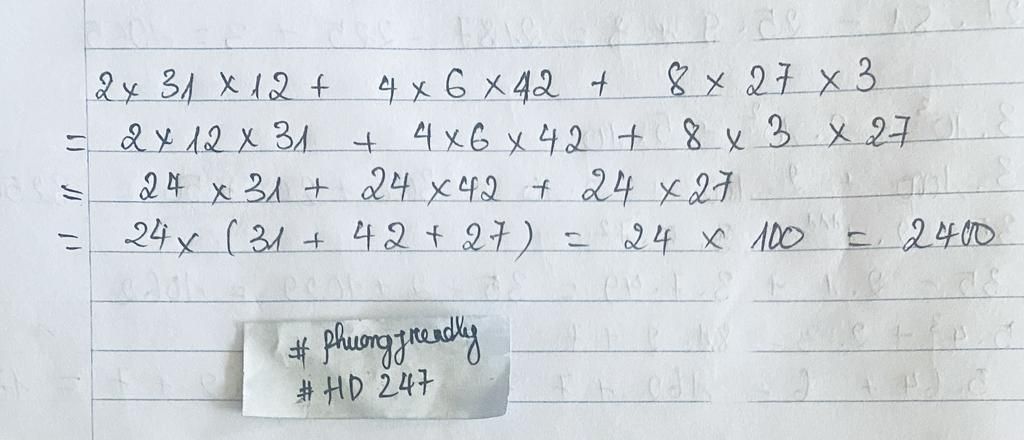 2 × 31 × 12 + 4 × 6 × 42 + 8 × 27 × 3
= 2 × 12 × 31 + 4 × 6 × 42 + 8 × 3 × 27
= 24 × 31 + 24 × 42 + 24 × 27
= 24 × (31 + 42 + 27) = 24 × 100 = 2400
# phuongfrendly
# HD 247